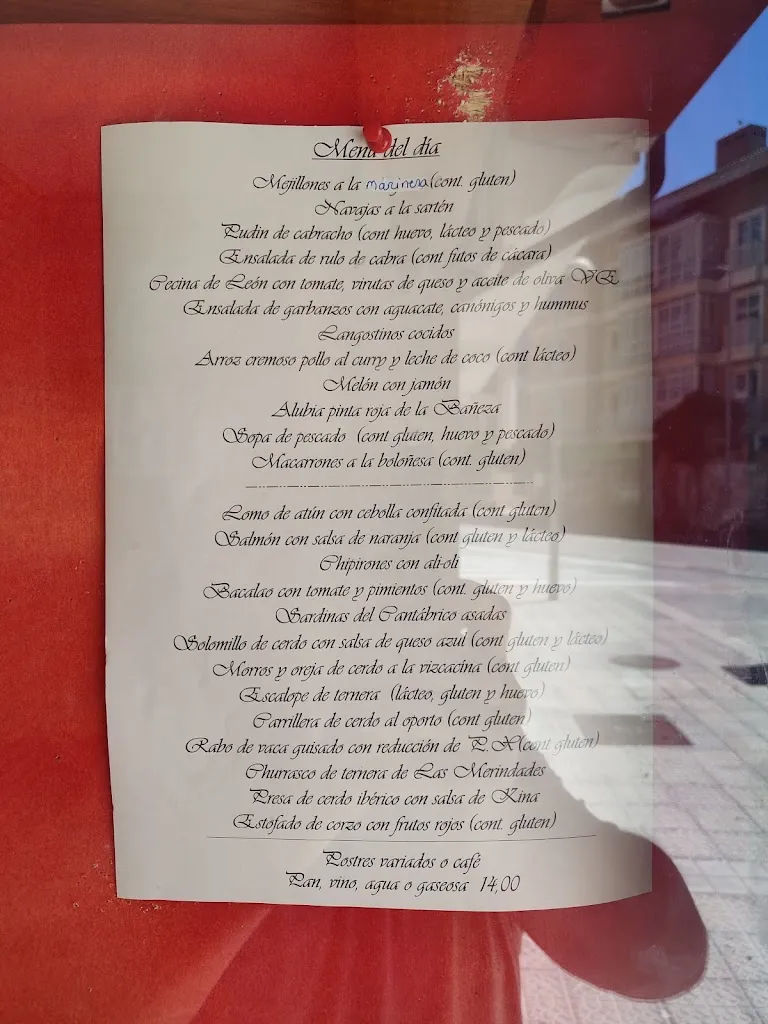 Menú del día
Mejillones a la marinera (cont. gluten)
Navajas a la sartén
Pudin de cabracho (cont huevo, lácteo y pescado)
Ensalada de rulo de cabra (cont futos de cácara)
Cecina de León con tomate, virutas de queso y aceite de oliva VE
Ensalada de garbanzos con aguacate, canónigos y hummus
Langostinos cocidos
Arroz cremoso pollo al curry y leche de coco (cont lácteo)
Melón con jamón
Alubia pinta roja de la Bañeza
Sopa de pescado (cont gluten, huevo y pescado)
Macarrones a la boloñesa (cont. gluten)
Lomo de atún con cebolla confitada (cont gluten)
Salmón con salsa de naranja (cont gluten y lácteo)
Chipirones con ali-oli
Bacalao con tomate y pimientos (cont. gluten y huevo)
Sardinas del Cantábrico asadas
Solomillo de cerdo con salsa de queso azul (cont gluten y lácteo)
Morros y oreja de cerdo a la vizcacina (cont gluten)
Escalope de ternera (lácteo, gluten y huevo)
Carrillera de cerdo al oporto (cont gluten)
Rabo de vaca guisado con reducción de P.X(cont gluten)
Churrasco de ternera de Las Merindades
Presa de cerdo ibérico con salsa de Kina
Estofado de corzo con frutos rojos (cont. gluten)
Postres variados o café
Pan, vino, agua o gaseosa 14,00